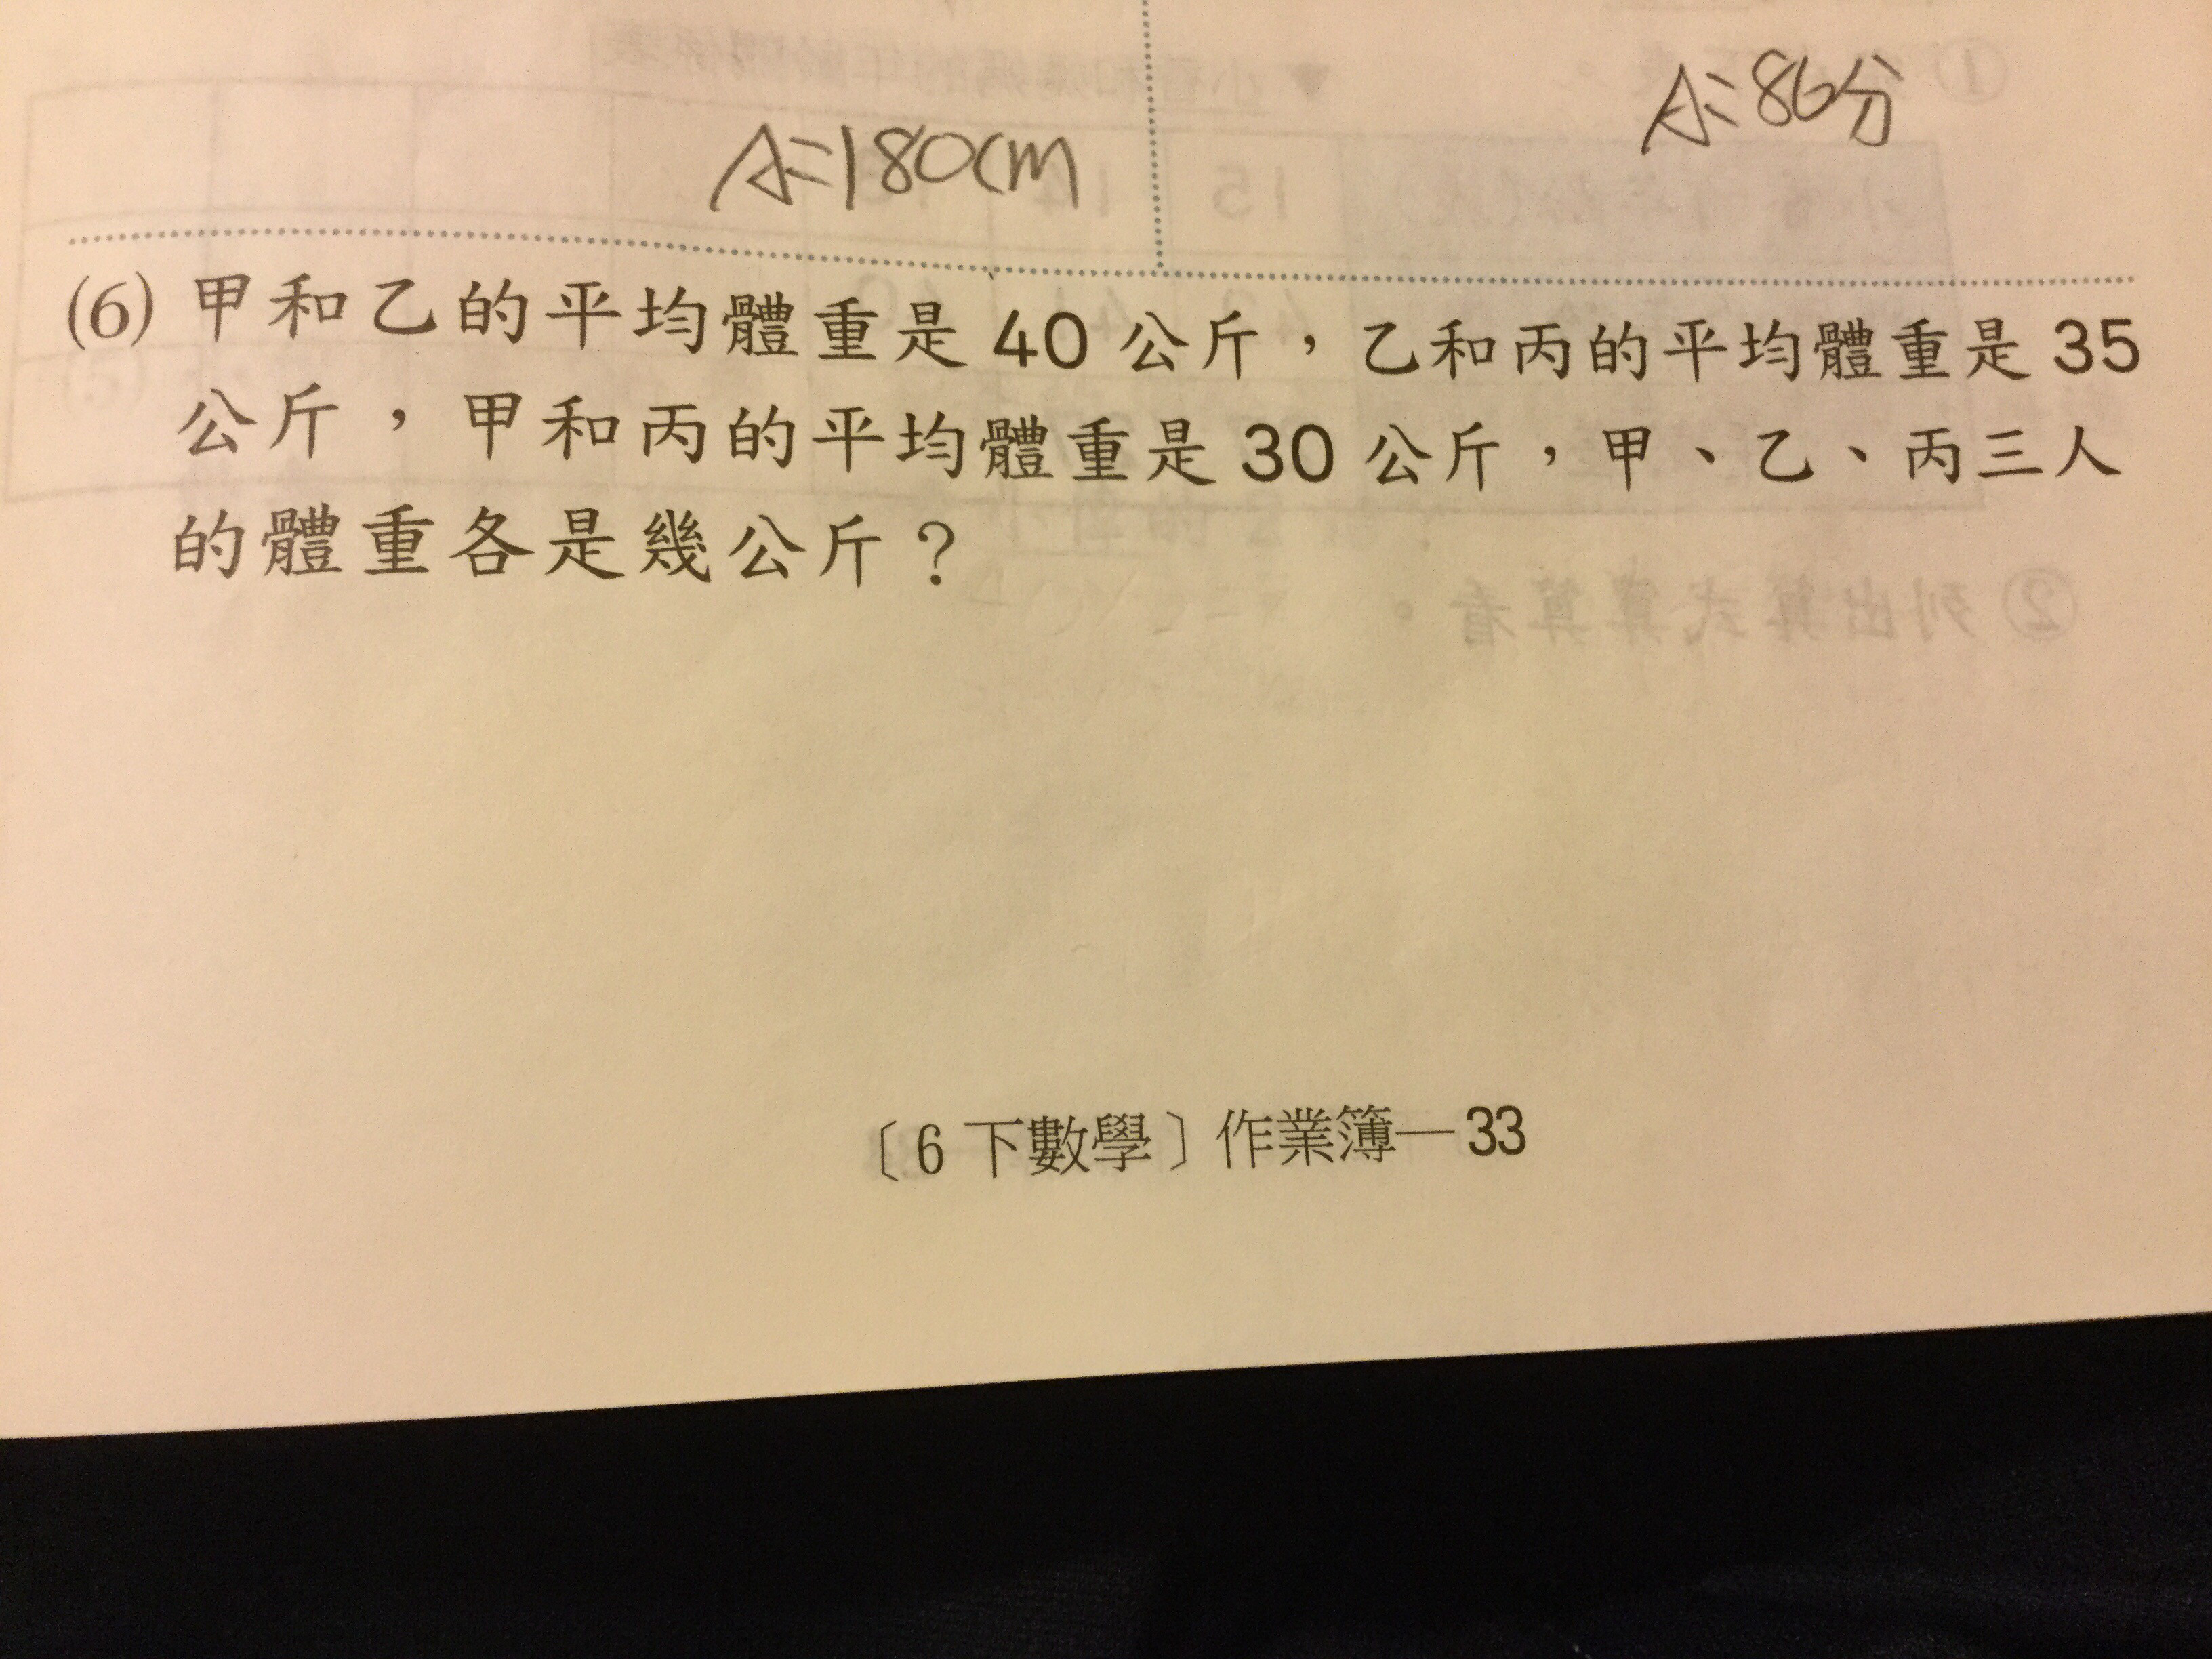 A:86分
A:180cm
(6) 甲和乙的平均體重是 40 公斤，乙和丙的平均體重是 35
公斤，甲和丙的平均體重是 30 公斤，甲、乙、丙三人
的體重各是幾公斤？
②列出算式算算看。
〔6 下數學〕作業簿—33